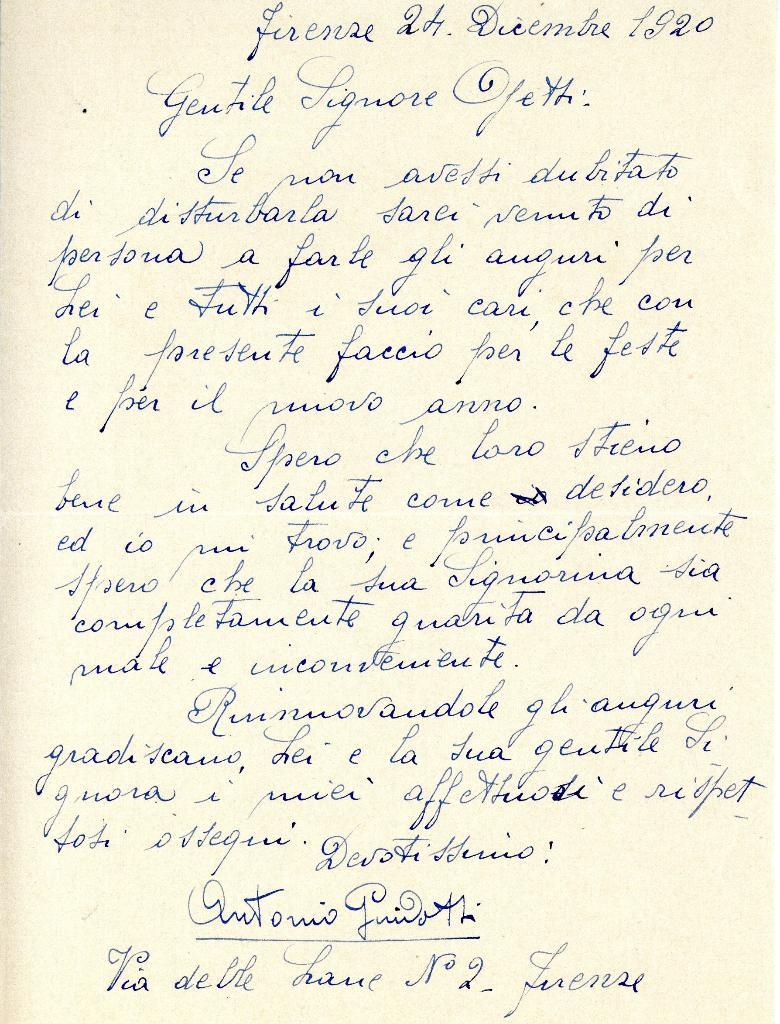 Firenze 24. Dicembre 1920
Gentile Signore Ojetti:
Se non avessi dubitato
di disturbarla sarei venuto di
persona a farle gli auguri per
Lei e tutti i suoi cari, che con
la presente faccio per le feste
e per il nuovo anno.
Spero che loro stieno
bene in salute come desidero,
ed io mi trovo; e principalmente
spero che la sua Signorina sia
completamente guarita da ogni
male e inconveniente.
Rinnovandole gli auguri
gradiscano, Lei e la sua gentile Si
gnora i miei affettuosi e rispet-
tosi ossequi.
Devotissimo:
Antonio Guidotti
Via delle Lane Nº 2- Firenze